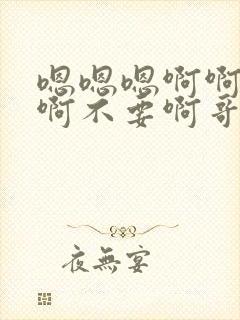 嗯嗯嗯啊啊
啊不要啊哥
夜無宴